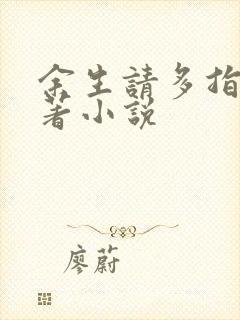 余生請多指
著小説
廖蔚